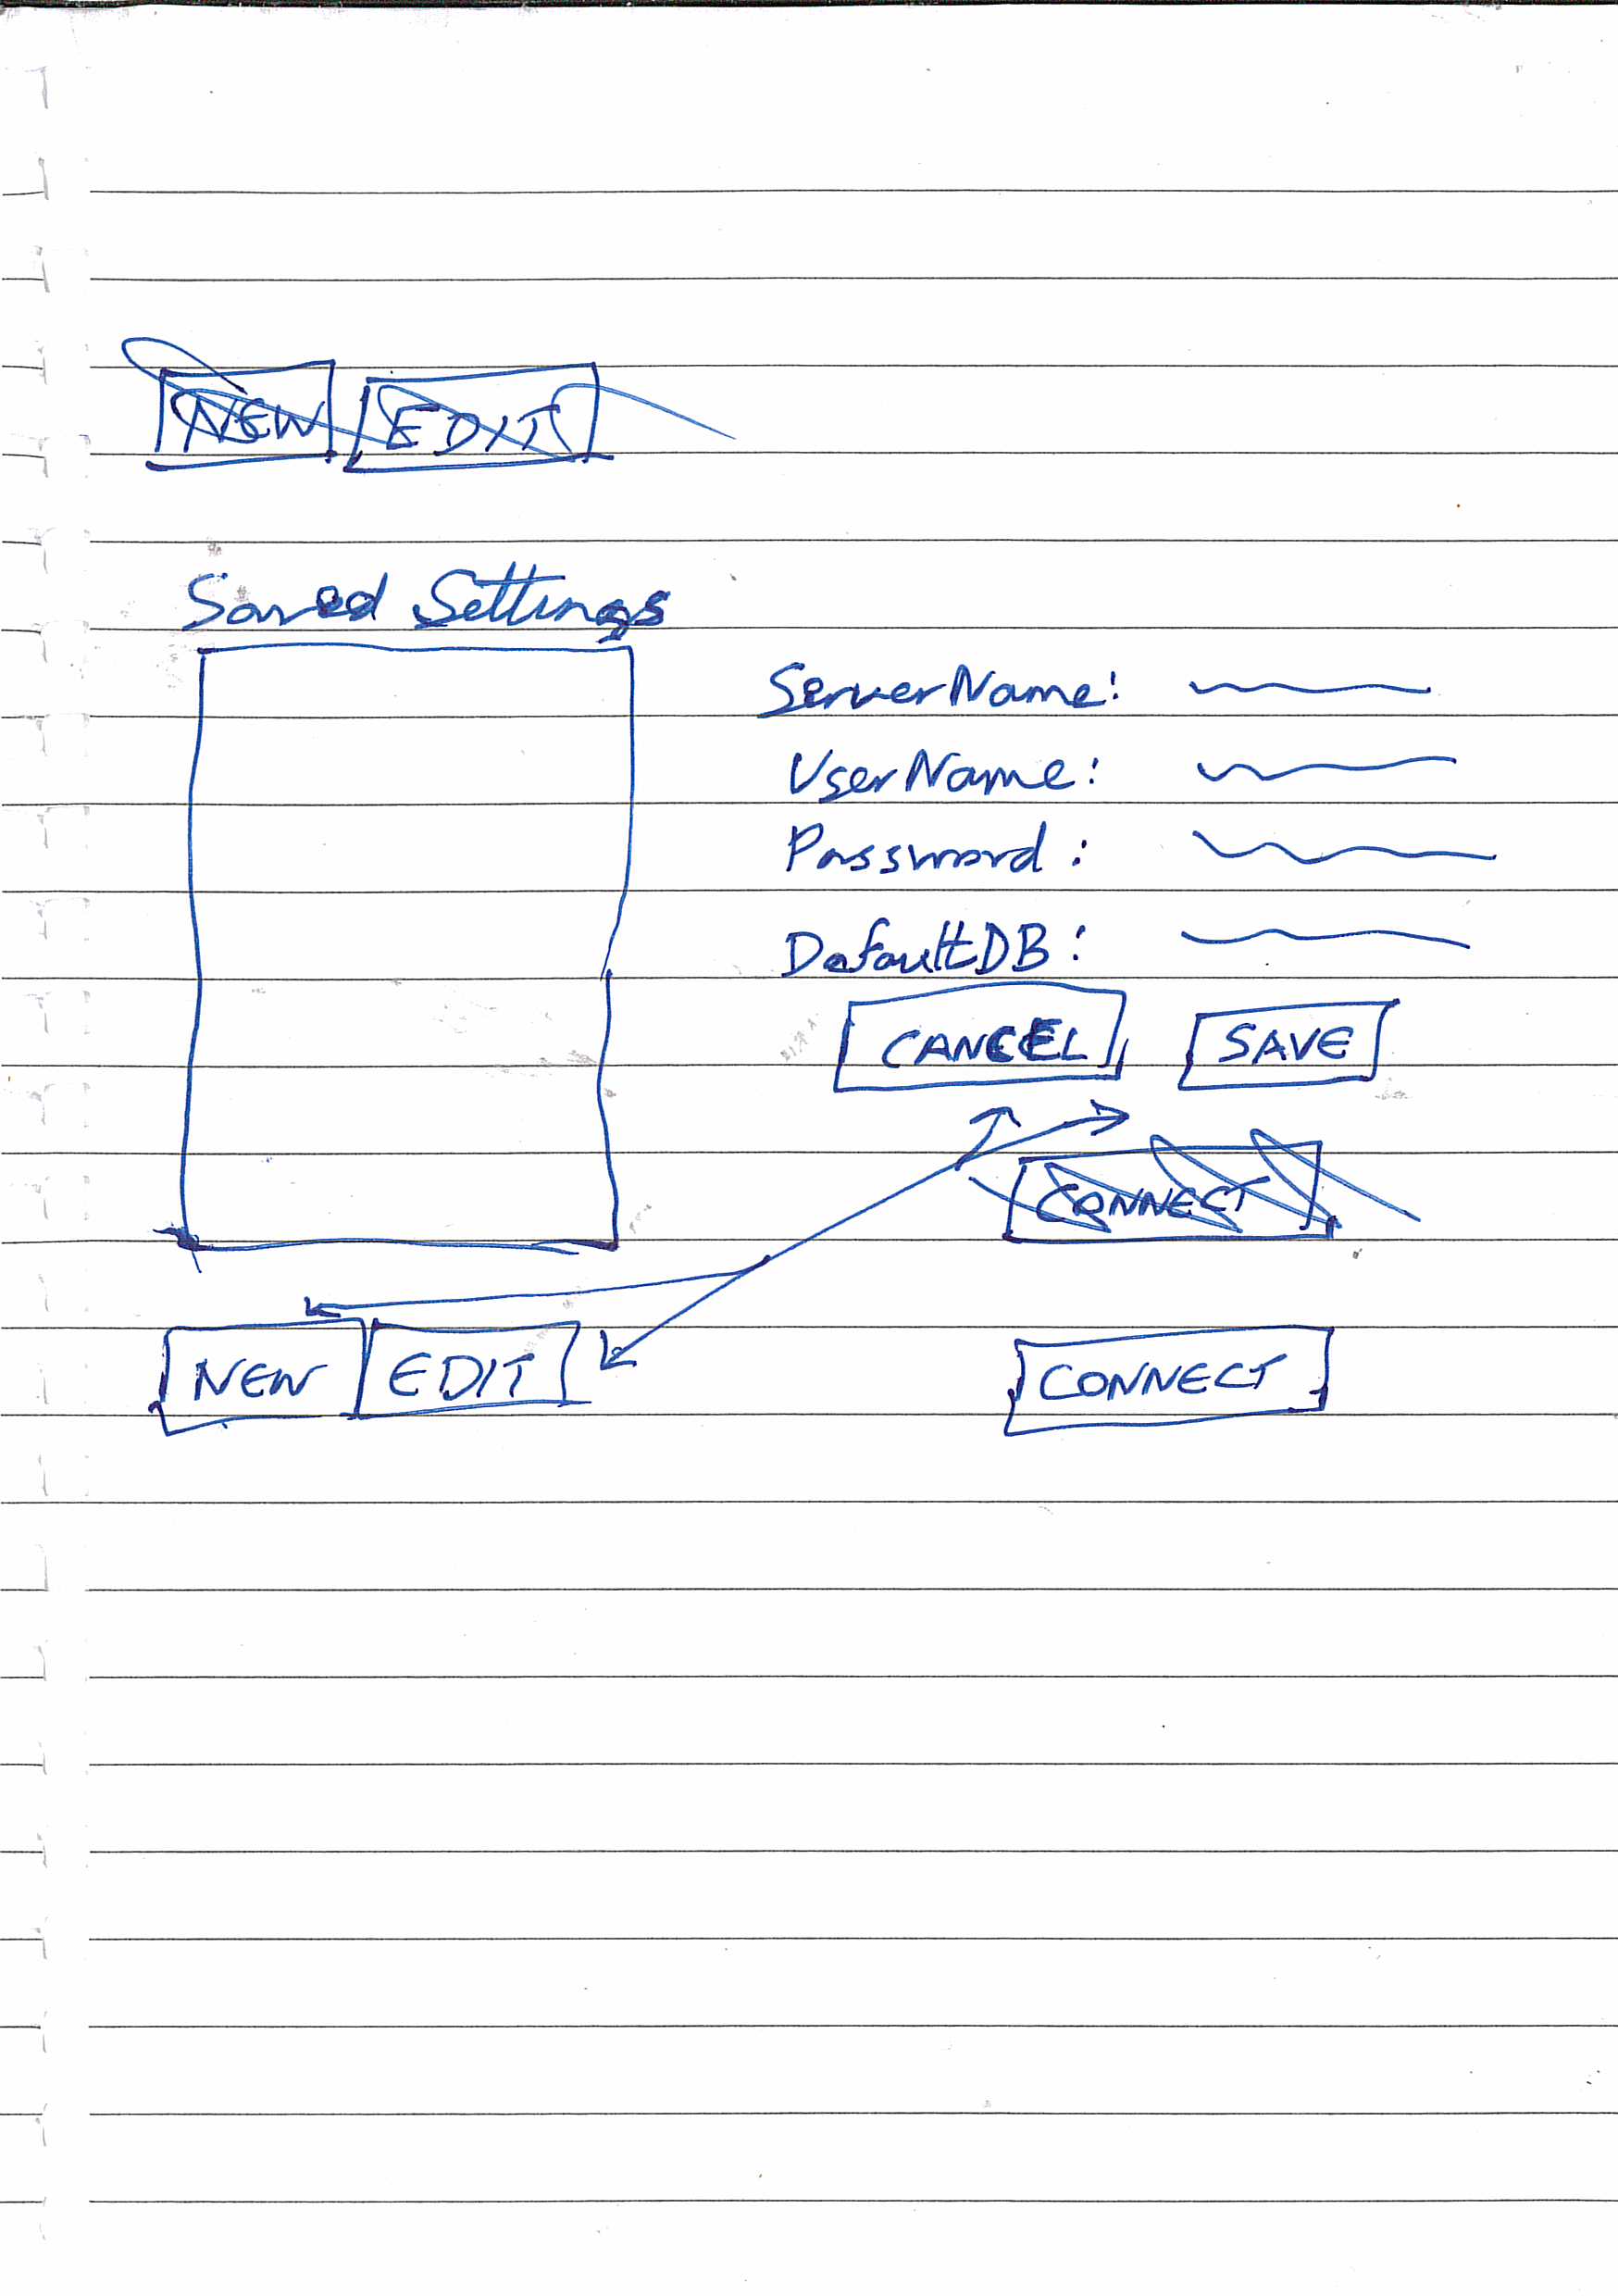 NEW EDIT
Saved Settings
ServerName:
UserName:
Password:
DefaultDB:
CANCEL SAVE
CONNECT
NEW EDIT CONNECT